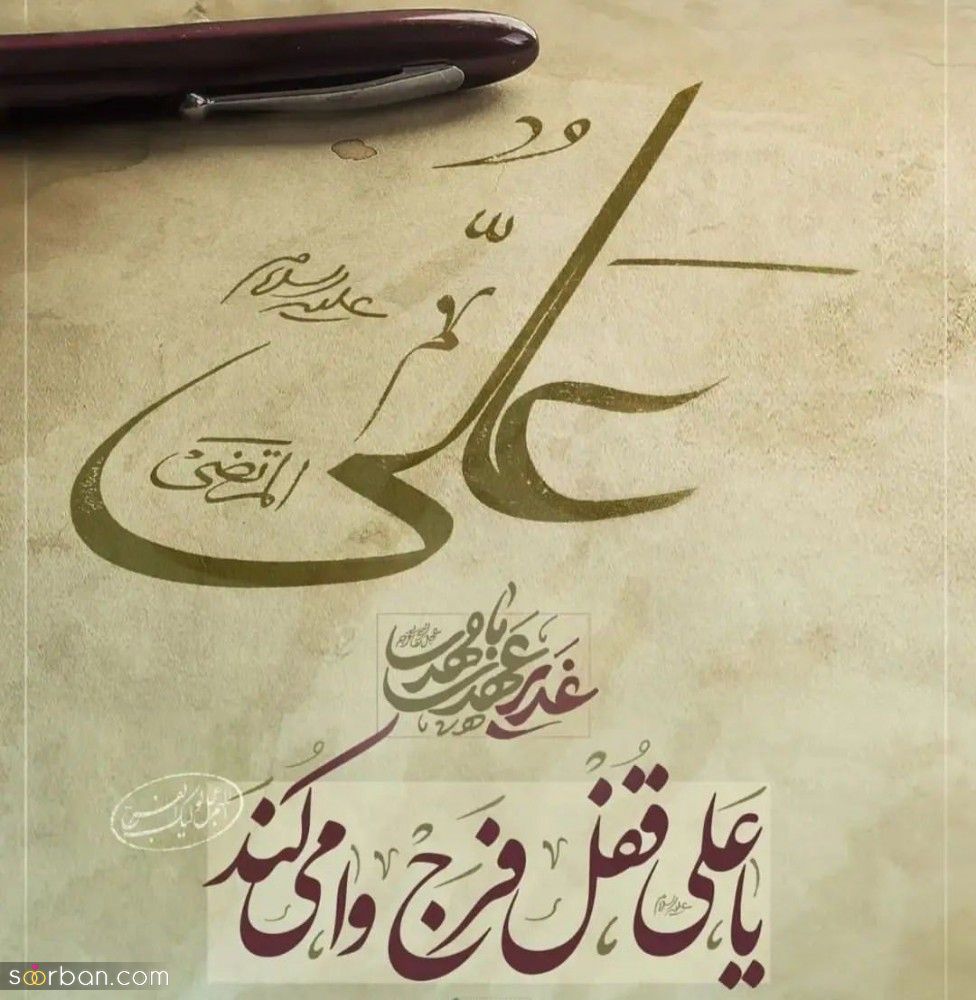 علی
علیه السلام
المرتضی
غدیر عهدی با مهدی
یا علی قفل فرج وا می کند
علیه السلام
soorban.com